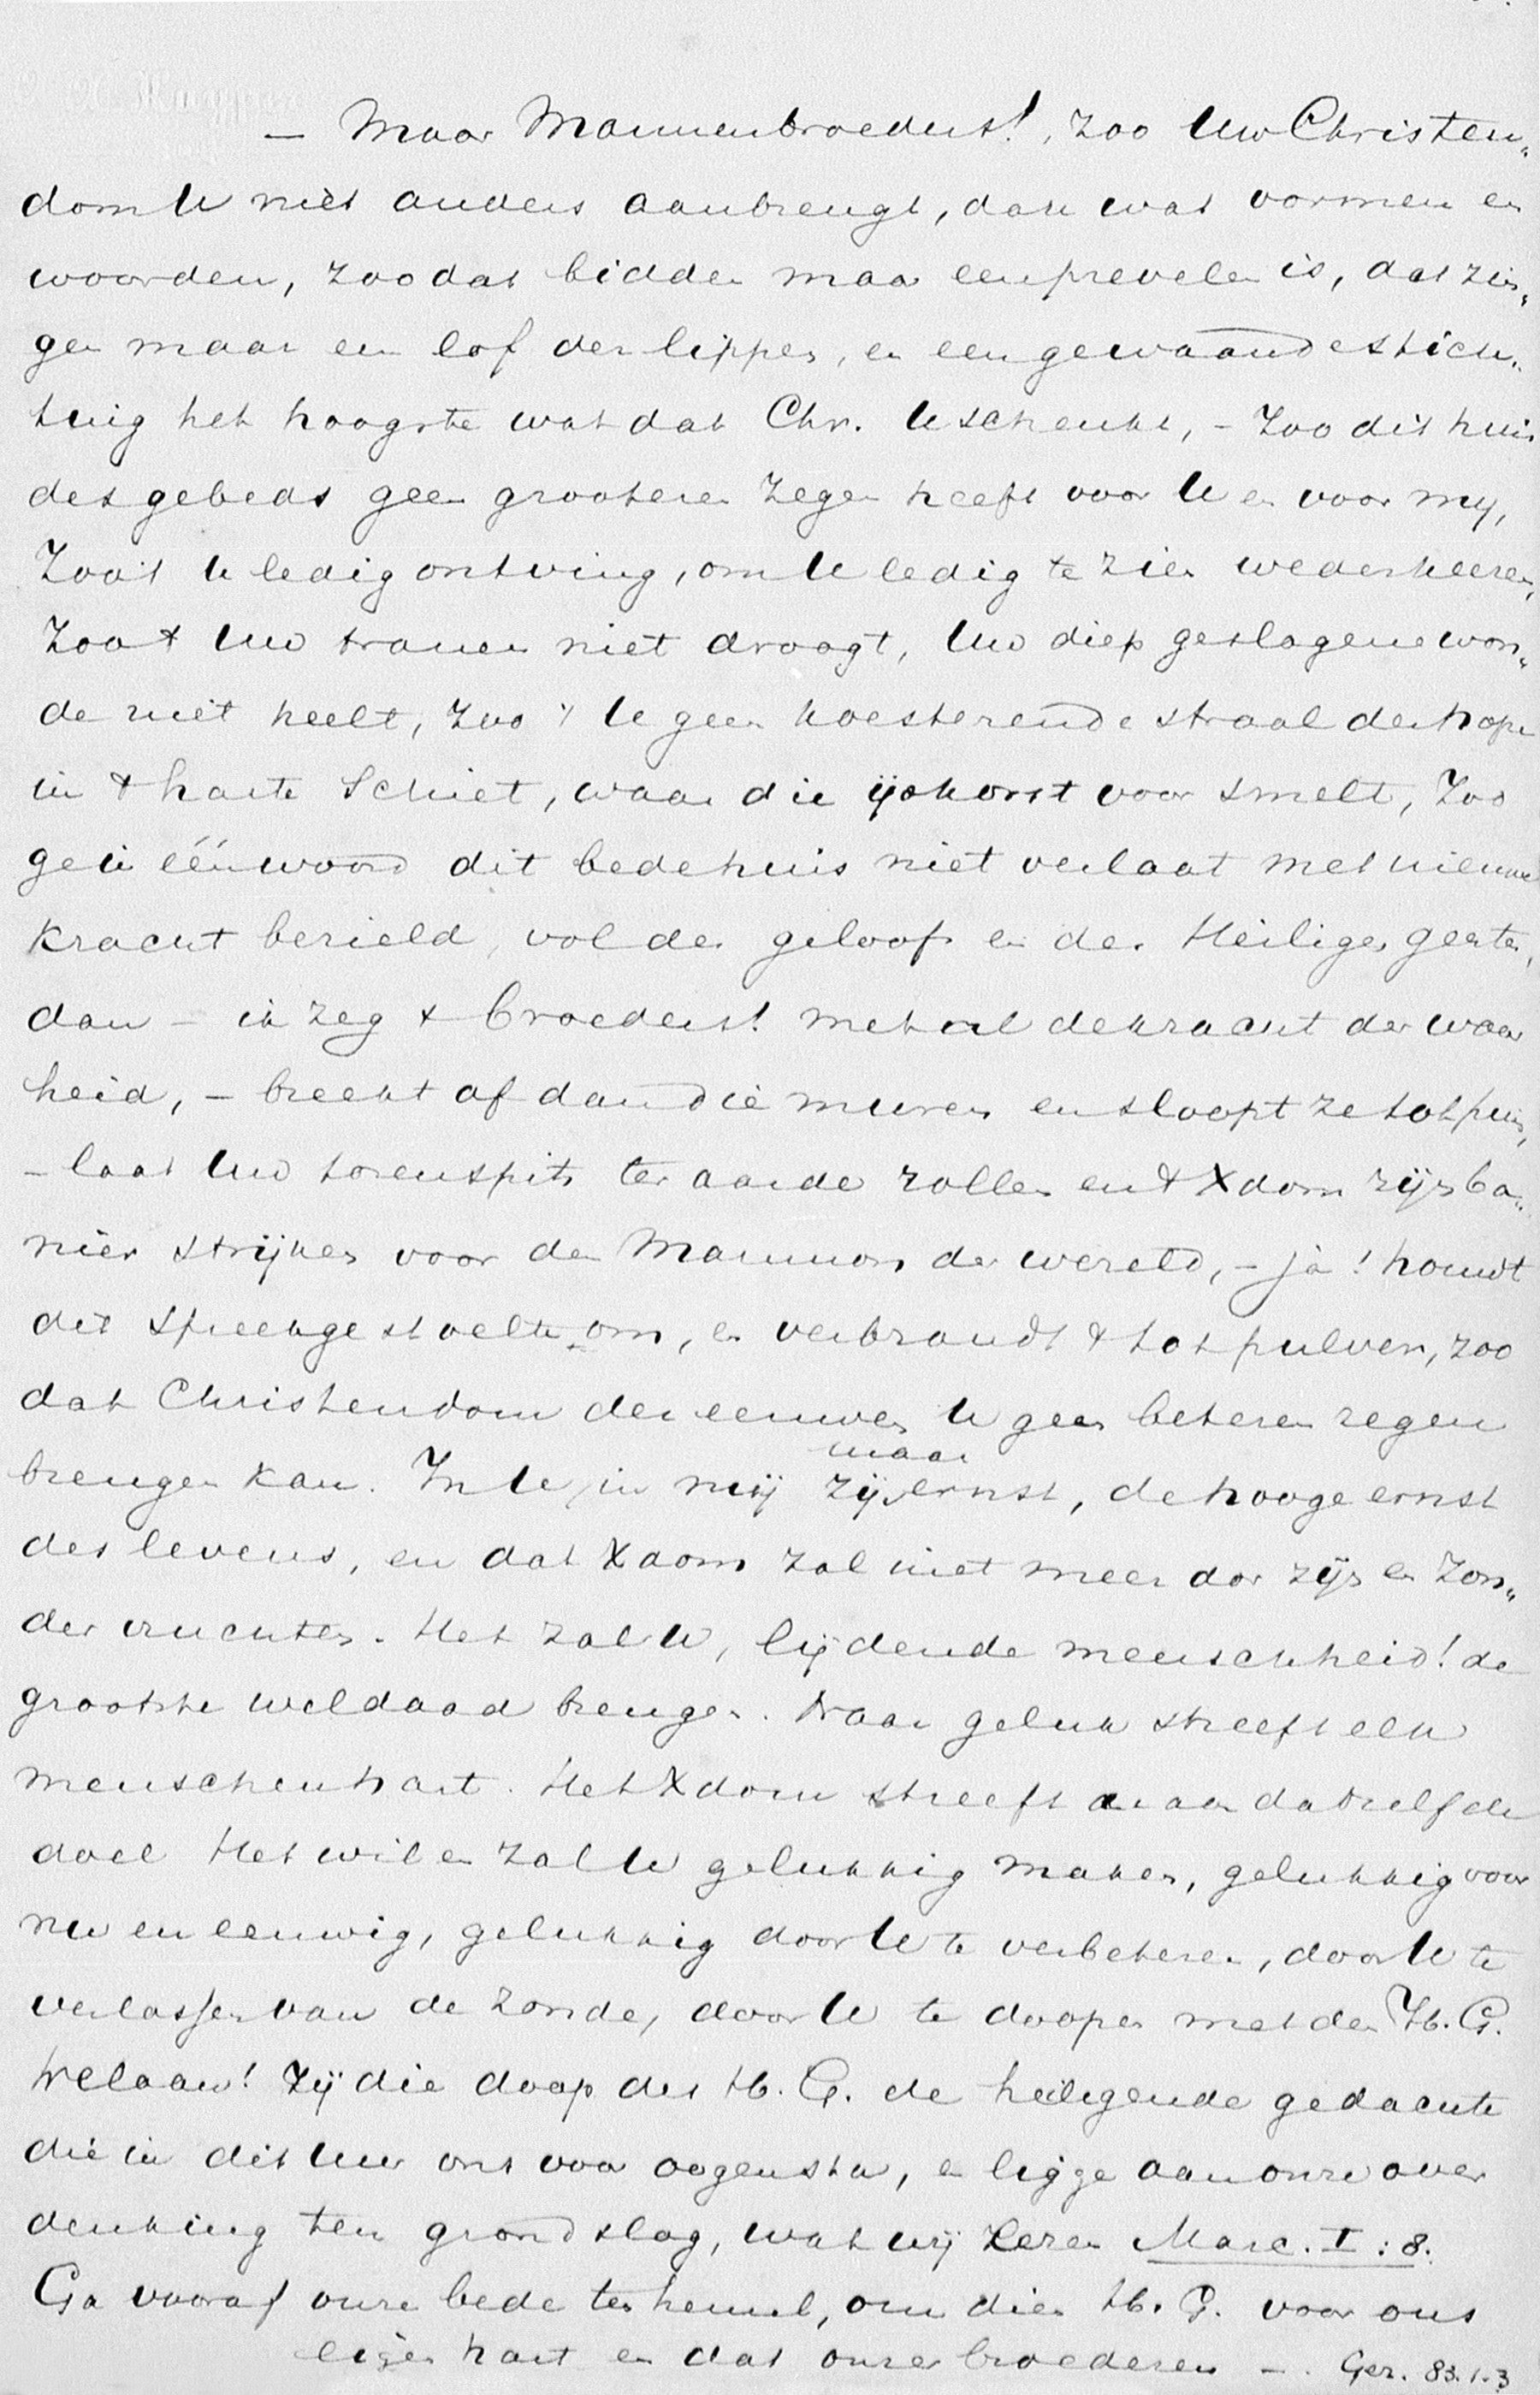 — Maar Mannenbroeders!, zoo Uw Christen„
dom U niet anders aanbrengt, dan wat vormen en
woorden, zoodat bidden maar een prevelen is, dat zin„
gen maar een lof der lippen, en een gewaande stich„
ting het hoogste wat dat Chr. U schenkt, – zoo dit huis
des gebeds geen grooteren zegen heeft voor U en voor my,
Zoo't U ledig ontving, om U ledig te zien wederkeeren,
Zoo 't Uw tranen niet droogt, Uw diep geslagene won„
de niet heelt, zoo 't U geen koesterende straal der hope
in 't harte schiet, waar die ijskorst voor smelt, Zoo
ge in één woord dit bedehuis niet verlaat met nieuwe
kracht bezield, vol des geloofs en des Heiligen geestes,
dan – ik zeg 't broeders! met al de kracht der waar
heid, – breekt af dan die muren en sloopt ze tot puin,
– laat Uw torenspits ter aarde rollen en 't Xdom zijn ba„
nier strijken voor den Mammon der wereld, – ja! houwt
dit spreekgestoelte om, en verbrandt 't tot pulver, zoo
dat Christendom der eeuwen U geen beteren zegen
brengen kan. In U, in mij zij maar ernst, de hooge ernst
des levens, en dat Xdom zal niet meer dor zijn en zon„
der vruchten. Het zal U, lijdende menschheid! de
grootste weldaad brengen. Naar geluk streeft elk
menschenhart. Het Xdom streeft naar datzelfde
doel Het wil en zal U gelukkig maken, gelukkig voor
nu en eeuwig, gelukkig door U te verbeteren, door U te
verlossen van de zonde, door U te doopen met den H. G.
Welaan! Zij die doop des H. G. de heiligende gedachte
die in dit uur ons voor oogen sta, en ligge aan onze over
denking ten grondslag, wat wij lezen Marc. I : 8.
Ga vooraf onze bede ten hemel, om dien H. G. voor ons
eigen hart en dat onzer broederen –. Gez. 83.1.3